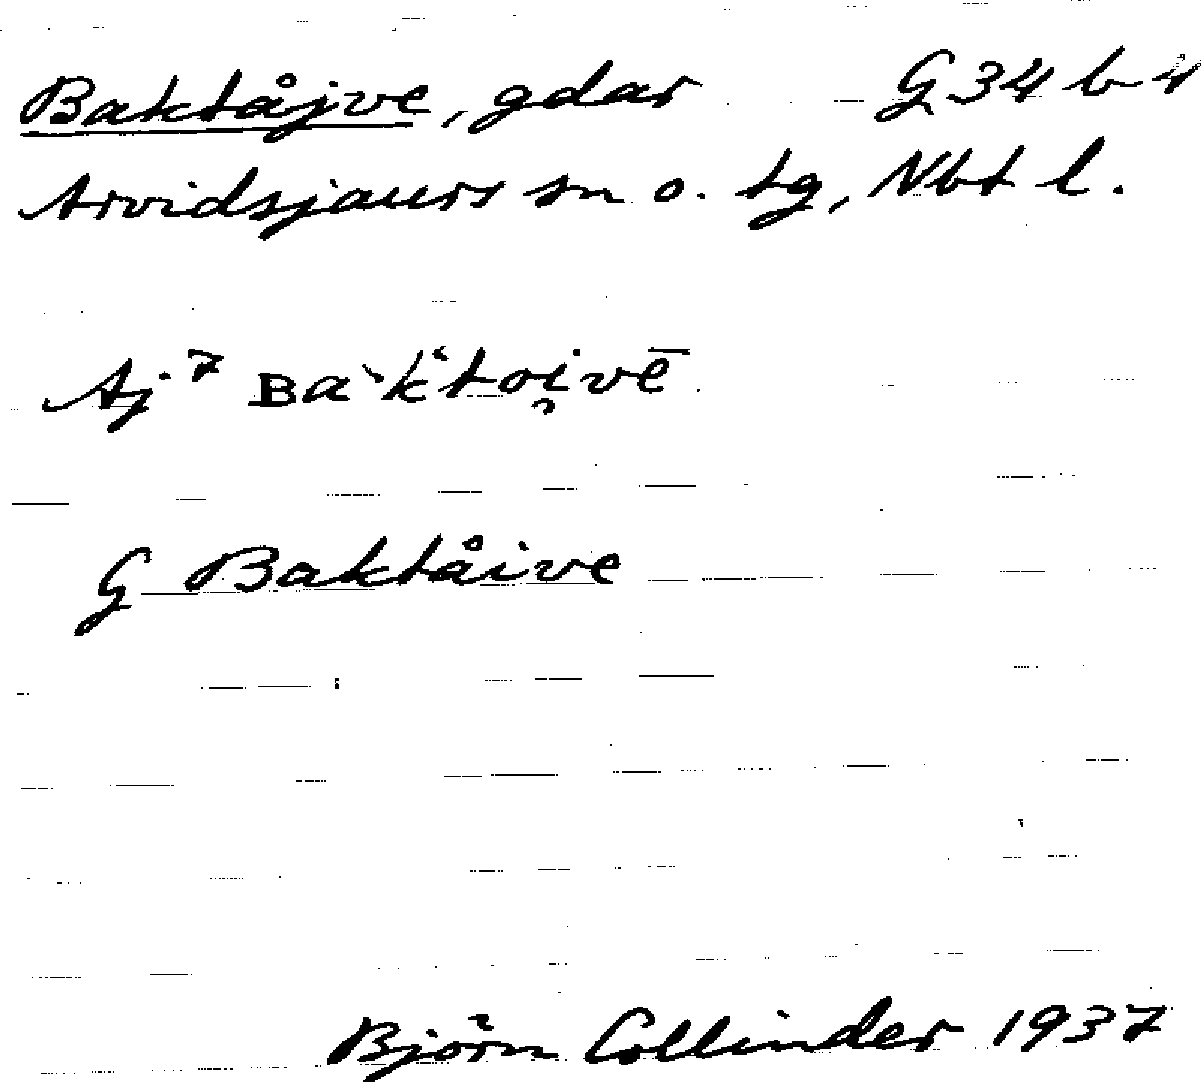 Baktåjve, gdar G 34 b 4
Arvidsjaurs sn o. tg, Nbt l.
Aj 7 ʙaˋk‘toi̯vē
G Baktåive
Björn Collinder 1937